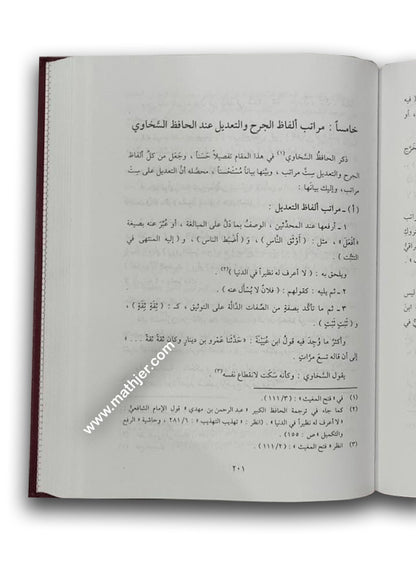 خامساً : مراتب ألفاظ الجرح والتعديل عند الحافظ السَّخاوي
ذكر الحافظُ السَّخاوي (١) في هذا المقام تفصيلاً حَسَناً ، وجَعَل من كلِّ ألفاظ
الجرح والتعديل سِتَّ مراتب ، وبيَّنها بياناً مُسْتَحْسَناً ، محصَّله أنَّ التعديل على سِتِّ
مراتب ، وإليك بيانَها :
( أ ) ـ مراتب ألفاظ التعديل :
١ ـ أرفعها عند المحدِّثين ، الوصفُ بما دَلَّ على المبالغة ، أو عُبِّرَ عنه بصيغة
« أَفْعَل » ، مثل : ( أَوْثَق النَّاسِ ) ، و( أَضْبَط الناس ) ، و( إليه المنتهى في
التثبُّت ) .
ويلحق به : ( لا أعرف له نظيراً في الدنيا ) (٢) .
٢ ـ ثم يليه : كقولهم : ( فلانٌ لا يُسأل عنه ) .
٣ ـ ثم ما تأكَّد بصفةٍ من الصِّفات الدَّالَّة على التوثيق ، كـ : ( ثِقَةٌ ثِقَةٌ ) ،
و( ثَبْتٌ ثَبْتٌ ) .
وأكثرُ ما وُجِدَ فيه قولُ ابن عُيَيْنَةَ : « حَدَّثَنا عَمرو بن دينار وكان ثقةً ثقةً . . . »
إلى أن قاله تسعَ مرَّاتٍ .
يقول السَّخاوي : وكأنَّه سَكَتَ لانقطاع نفسه (٣) .
(١) في « فتح المغيث » : ( ١١١/٣ ) .
(٢) كما جاء في ترجمة الحافظ الكبير « عبد الرحمن بن مهدي » قول الإمام الشافعيِّ
« لا أعرف له نظيراً في الدنيا » . ( انظر : « تهذيب التهذيب » : ٢٨١/٦ ، وحاشية « الرفع
والتكميل » ص : ١٥٥ ) .
(٣) انظر « فتح المغيث » : ( ١١١/٢ ) .
٢٠١
www.mathjer.com